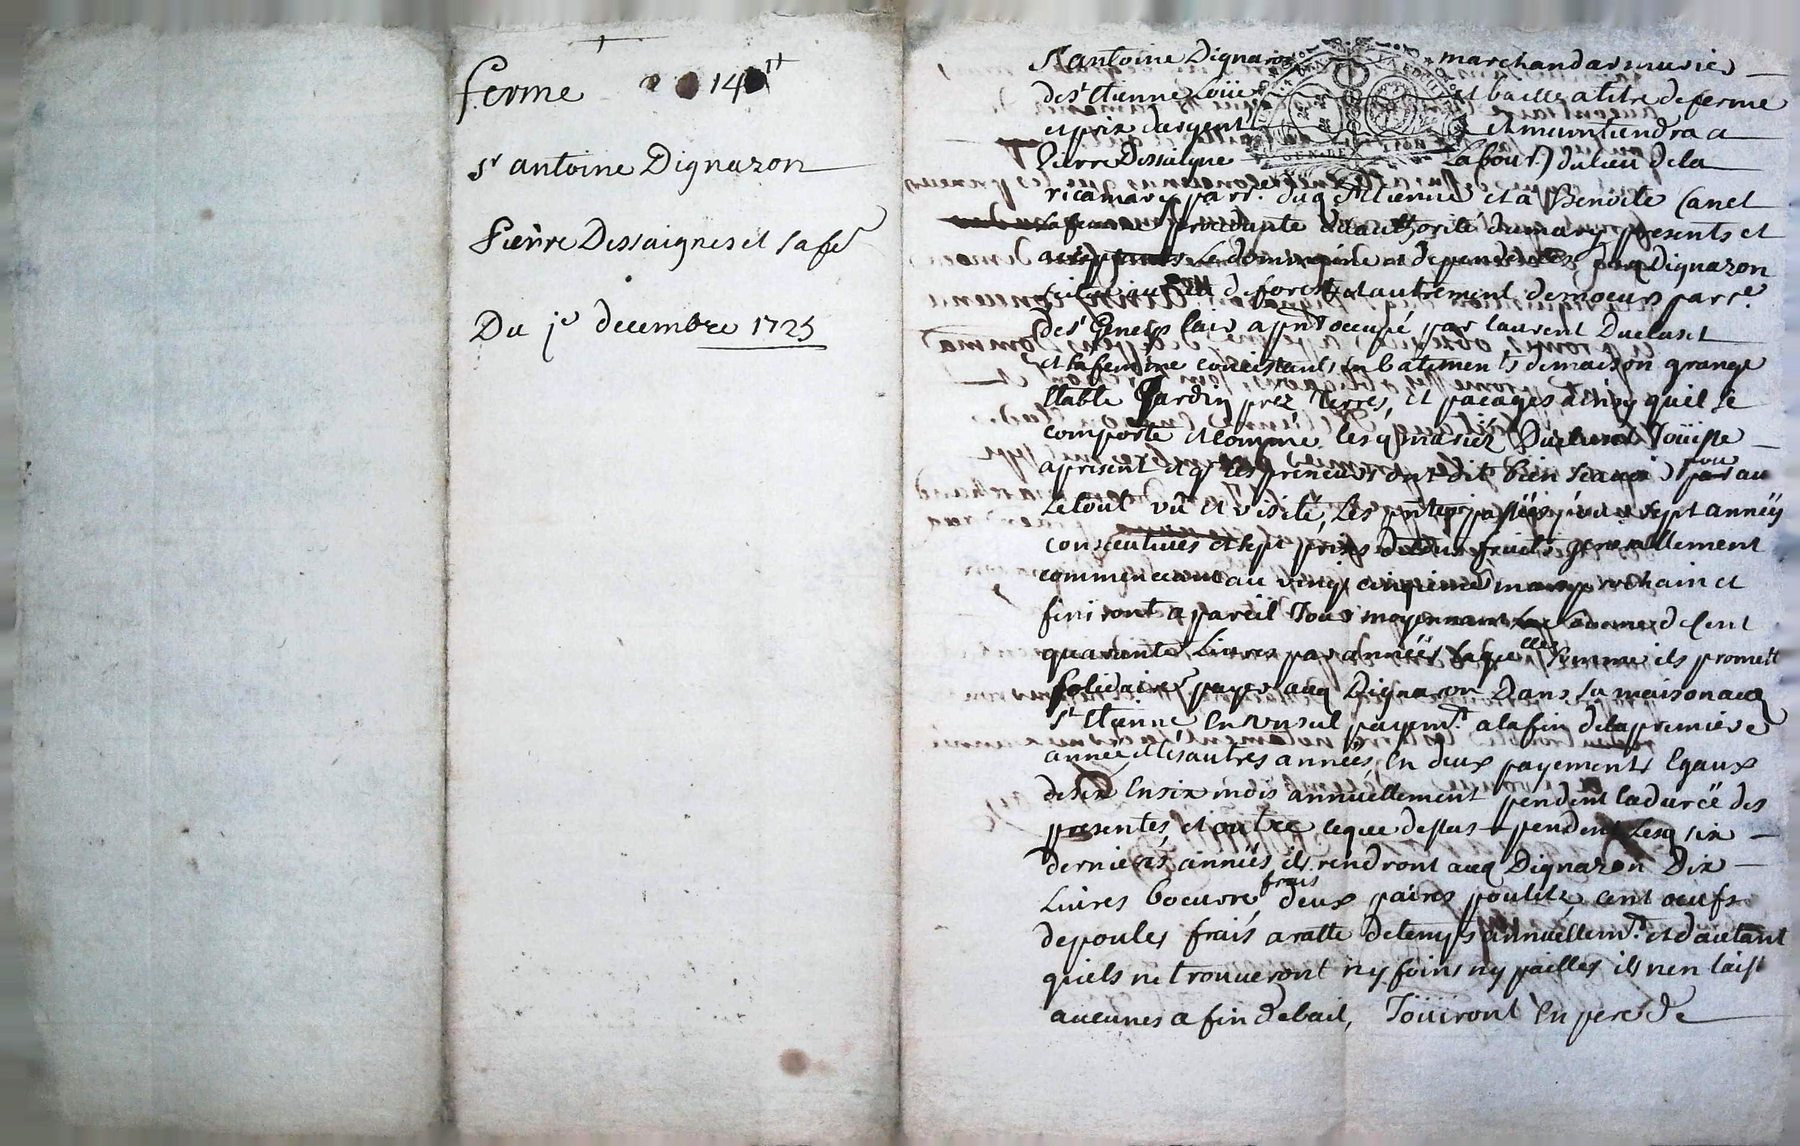 ferme 140tt
Sr antoine Dignaron
Pierre Dessaignes et sa fe
Du je decembre 1725
Sr antoine Dignaron marchand armurier
de St Etienne Loüe et baille a titre de ferme
et prix dargent et maintiendra a
Pierre Dessaigne labour) du lieu de la
ricamarie parr. dud St Etienne et a Benoite Canet
sa femme procedante de authorité du mary presents et
acceptants Le dommaine et dependances dud Dignaron
de forest et autrement demoeurs parr.e
de St Genest lair a pnt occupé par laurent Duclaset
et sa femme consistants en batiments de maison grange
Etable Jardin prez Terres, et pacages ainsy quil se
comporte et comme lesd mariéz Jouisse
a present et q les preneurs ont dit bien scauoir pour au
Le tout vû et visité, Les pntes passéés pour sept annéés
consecutiues et sept prises de tous fruits generallement
commenceront au vingt cinquieme mars prochain et
finiront a pareil Jour moyennant La somme de Cent
quarante Liures par annéés laquelle somme ils promett
solidaires payer aud Dignaron Dans sa maison aud
St Etienne En un seul payemt. a la fin de la premiere
année et les autres années En deux payements Egaux
de six En six mois annuellement pendent la duréé des
presentes, et outre ce que dessus pendent lesd six
dernieres annéés ils rendront aud Dignaron Dix
Liures boeurre frais deux paires poulets, cent oeufs
de poules frais a ratte de temps annuellemt. et dautant
quils ne trouueront ny foins ny pailles ils nen laiss
aucunes a fin de bail, Joüiront En pere de